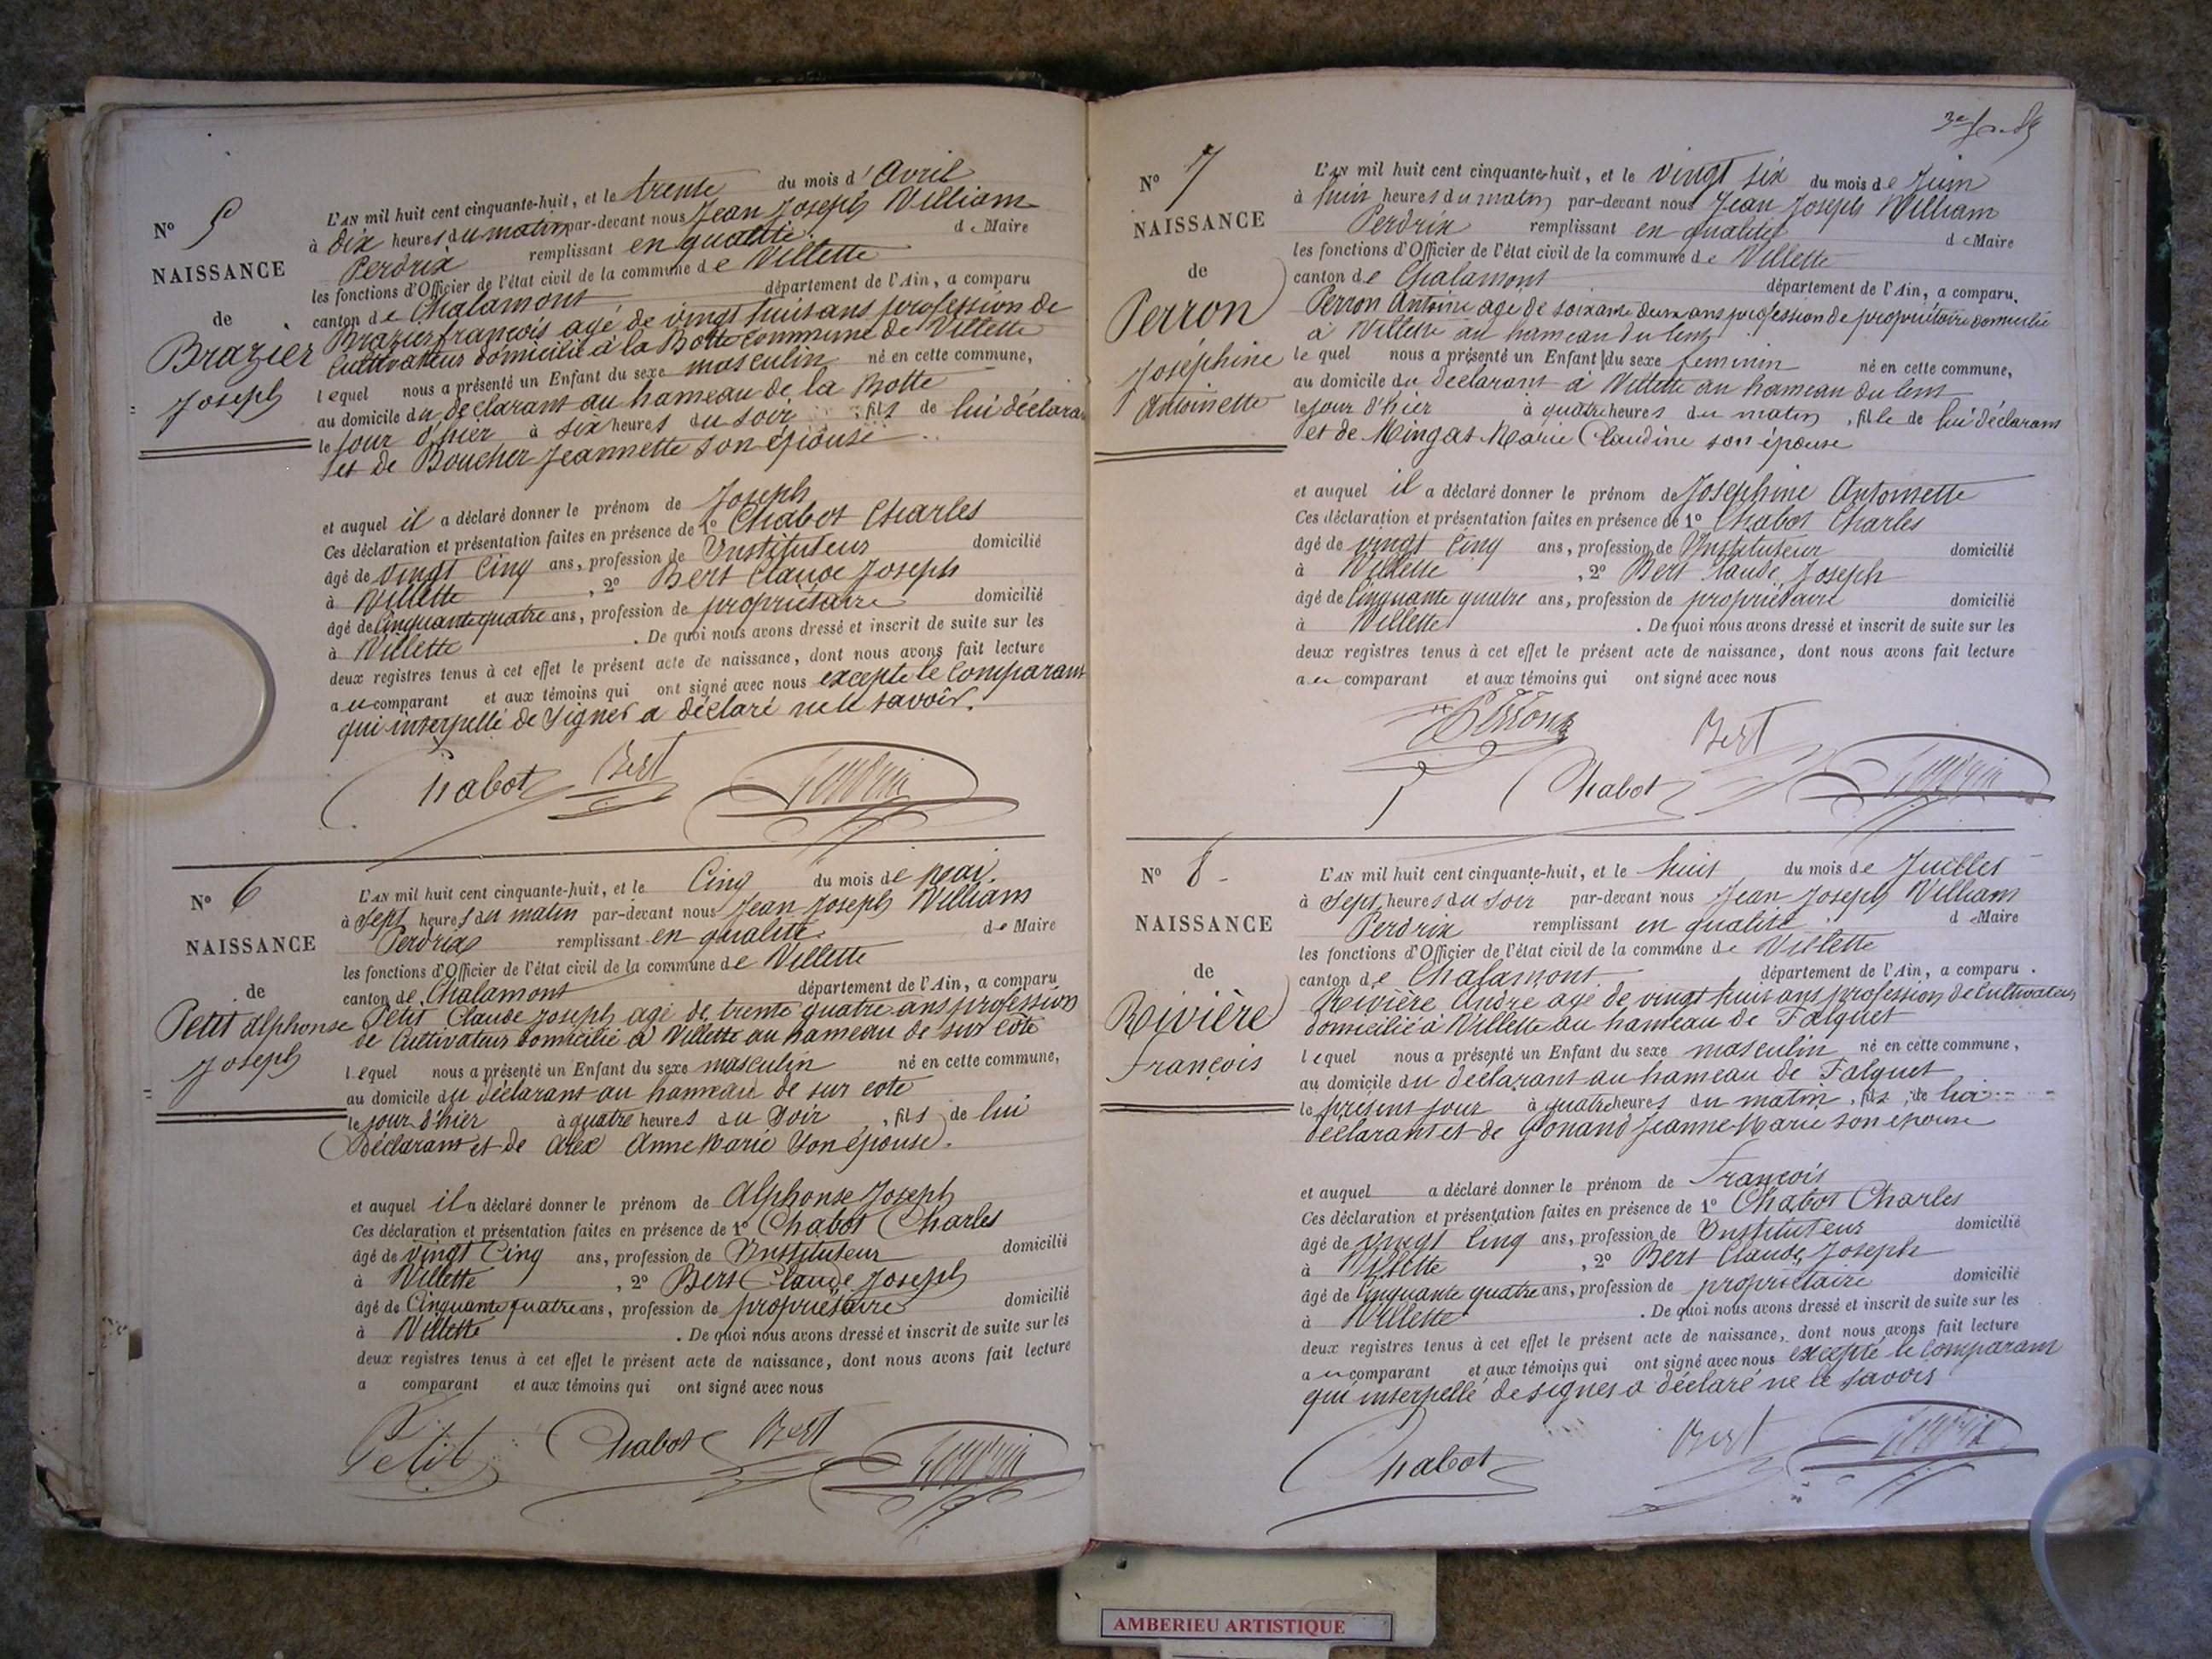 N° 5
NAISSANCE
de
Brazier
Joseph
L'AN mil huit cent cinquante-huit, et le trente du mois d'Avril
à dix heures du matin par-devant nous Jean Joseph William
Perdrix remplissant en qualité de Maire
les fonctions d'Officier de l'état civil de la commune de Villette
canton de Chalamont département de l'Ain, a comparu
Brazier françois agé de vingt huit ans profession de
Cultivateur domicilié à la Botte commune de Villette
lequel nous a présenté un Enfant du sexe masculin né en cette commune,
au domicile du déclarant au hameau de la Botte
le jour d'hier à six heures du soir, fils de lui déclarant
et de Boucher Jeannette son épouse
et auquel il a déclaré donner le prénom de Joseph
Ces déclaration et présentation faites en présence de 1° Chabot Charles
âgé de vingt Cinq ans, profession de Instituteur domicilié
à Villette, 2° Bert Claude Joseph
âgé de Cinquante quatre ans, profession de propriétaire domicilié
à Villette. De quoi nous avons dressé et inscrit de suite sur les
deux registres tenus à cet effet le présent acte de naissance, dont nous avons fait lecture
au comparant et aux témoins qui ont signé avec nous excepté le Comparant
qui interpellé de signer a déclaré ne le savoir.
Chabot Bert Perdrix
N° 6
NAISSANCE
de
Petit Alphonse
Joseph
L'AN mil huit cent cinquante-huit, et le Cinq du mois de mai
à Sept heures du matin par-devant nous Jean Joseph William
Perdrix remplissant en qualité de Maire
les fonctions d'Officier de l'état civil de la commune de Villette
canton de Chalamont département de l'Ain, a comparu
Petit Claude Joseph agé de trente quatre ans profession
de Cultivateur domicilié à Villette au hameau de sur cote
lequel nous a présenté un Enfant du sexe masculin né en cette commune,
au domicile du déclarant au hameau de sur cote
le jour d'hier à quatre heures du soir, fils de lui
Déclarant et de Arex Anne Marie son épouse.
et auquel il a déclaré donner le prénom de Alphonse Joseph
Ces déclaration et présentation faites en présence de 1° Chabot Charles
âgé de vingt Cinq ans, profession de Instituteur domicilié
à Villette, 2° Bert Claude Joseph
âgé de Cinquante quatre ans, profession de propriétaire domicilié
à Villette. De quoi nous avons dressé et inscrit de suite sur les
deux registres tenus à cet effet le présent acte de naissance, dont nous avons fait lecture
a comparant et aux témoins qui ont signé avec nous
Petit Chabot Bert Perdrix
N° 7
NAISSANCE
de
Perron
Joséphine
Antoinette
L'AN mil huit cent cinquante-huit, et le vingt six du mois de Juin
à huit heures du matin par-devant nous Jean Joseph William
Perdrix remplissant en qualité de Maire
les fonctions d'Officier de l'état civil de la commune de Villette
canton de Chalamont département de l'Ain, a comparu.
Perron Antoine agé de soixante deux ans profession de propriétaire domicilié
à Villette au hameau du lent
lequel nous a présenté un Enfant du sexe feminin né en cette commune,
au domicile du declarant à Villette au hameau du lent
le jour d'hier à quatre heures du matin, fille de lui déclarant
et de Mingat Marie Claudine son épouse
et auquel il a déclaré donner le prénom de Joséphine Antoinette
Ces déclaration et présentation faites en présence de 1° Chabot Charles
âgé de vingt Cinq ans, profession de Instituteur domicilié
à Villette, 2° Bert Claude Joseph
âgé de Cinquante quatre ans, profession de propriétaire domicilié
à Villette. De quoi nous avons dressé et inscrit de suite sur les
deux registres tenus à cet effet le présent acte de naissance, dont nous avons fait lecture
au comparant et aux témoins qui ont signé avec nous
Perron Bert
Chabot Perdrix
N° 8
NAISSANCE
de
Rivière
François
L'AN mil huit cent cinquante-huit, et le huit du mois de Juillet
à Sept heures du soir par-devant nous Jean Joseph William
Perdrix remplissant en qualité de Maire
les fonctions d'Officier de l'état civil de la commune de Villette
canton de Chalamont département de l'Ain, a comparu.
Rivière André agé de vingt huit ans profession de Cultivateur
domicilié à Villette au hameau de Falquet
lequel nous a présenté un Enfant du sexe masculin né en cette commune,
au domicile du déclarant au hameau de Falquet
le présent jour à quatre heures du matin, fils de lui
déclarant et de Gonand Jeanne-Marie son épouse
et auquel a déclaré donner le prénom de François
Ces déclaration et présentation faites en présence de 1° Chabot Charles
âgé de vingt Cinq ans, profession de Instituteur domicilié
à Villette, 2° Bert Claude Joseph
âgé de Cinquante quatre ans, profession de propriétaire domicilié
à Villette. De quoi nous avons dressé et inscrit de suite sur les
deux registres tenus à cet effet le présent acte de naissance, dont nous avons fait lecture
au comparant et aux témoins qui ont signé avec nous excepté le comparant
qui interpellé de signer a déclaré ne le savoir
Chabot Bert Perdrix
AMBERIEU ARTISTIQUE